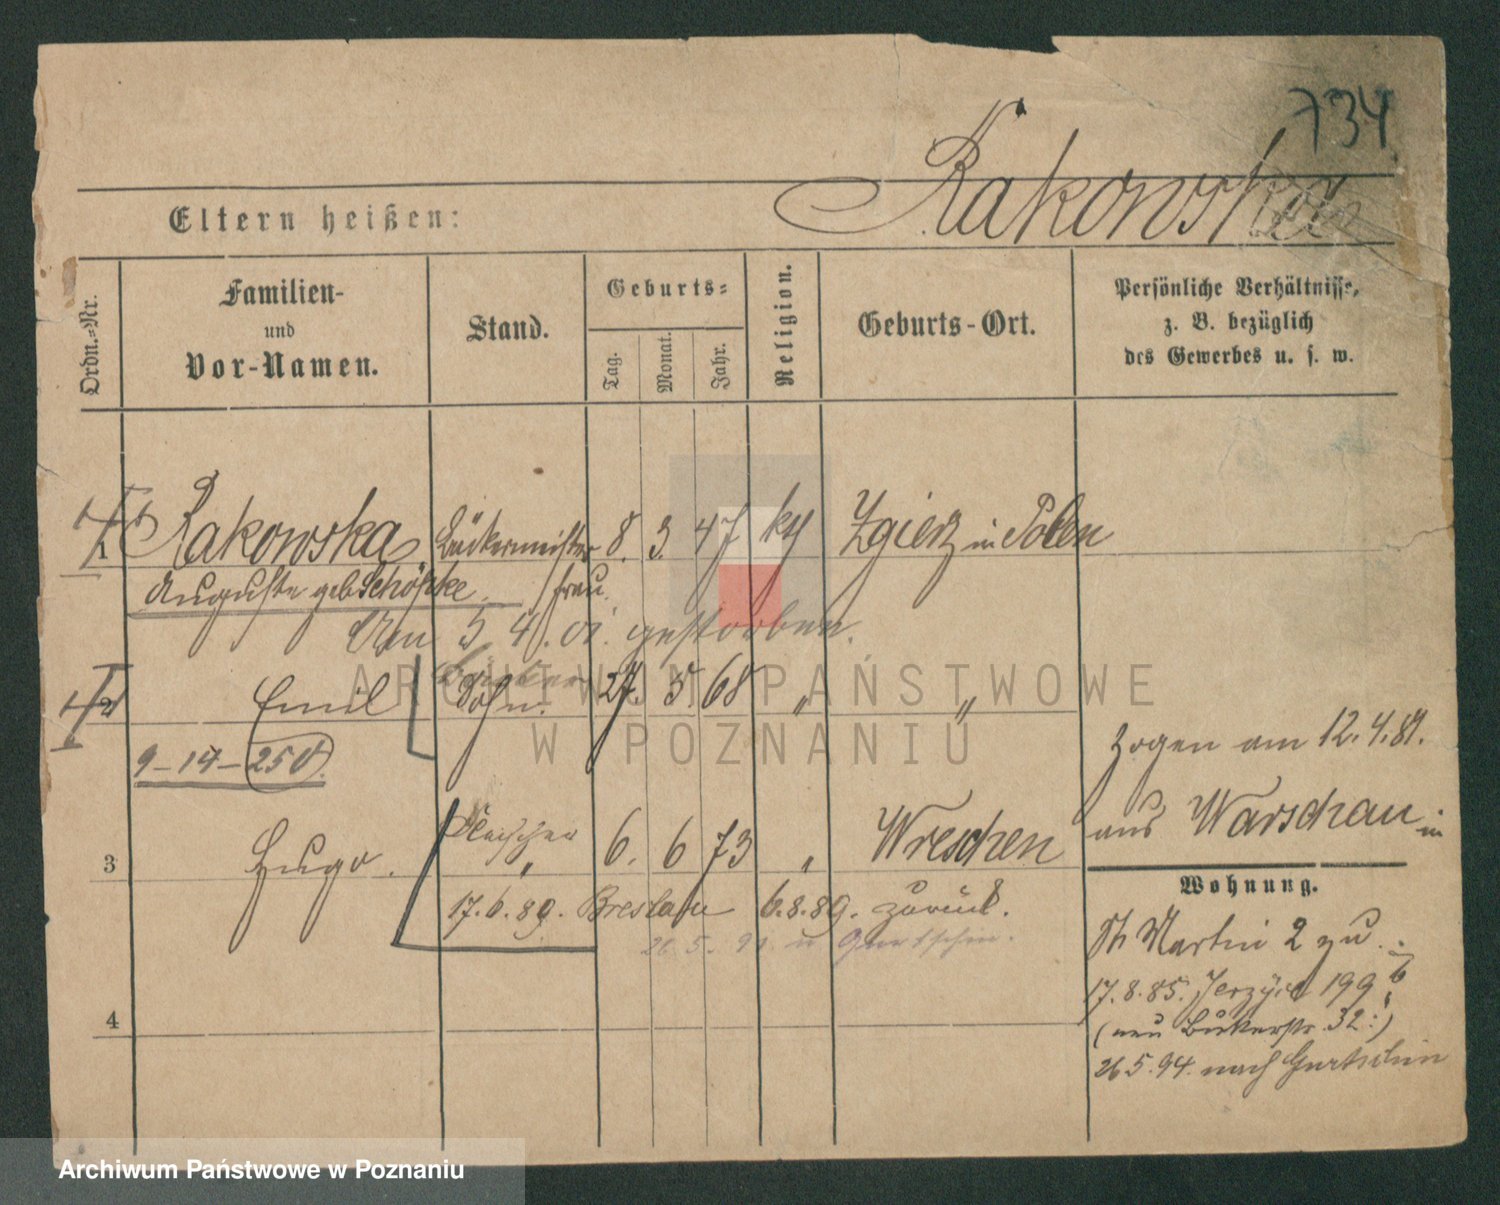 734
Rakowska
Eltern heißen:
Ordn.=Nr.
Familien-
und
Vor-Namen.
Stand.
Geburts=
Tag.
Monat.
Jahr.
Religion.
Geburts-Ort.
Persönliche Verhältnisse,
z. B. bezüglich
des Gewerbes u. s. w.
1 Rakowska Bäckermeister 8. 3. 47 Zgierz in Polen
Auguste geb Schöpke. frau.
Am 5 4. 01. gestorben.
2 Emil Sohn. 27. 5 68 " "
9-14-250.
Zogen am 12.4.81.
aus Warschau
3 Hugo. " 6. 6 73 " Wreschen
Wohnung.
17.6.89. Breslau 6.8.89. zurück.
26.5.94 n Gurtschin.
St Martin 2 zu.
17.8.85. Jerzyce 199
4
(neu Bukerstr. 32.)
26.5.94. nach Gurtschin
ARCHIWUM PAŃSTWOWE
W POZNANIU
Archiwum Państwowe w Poznaniu